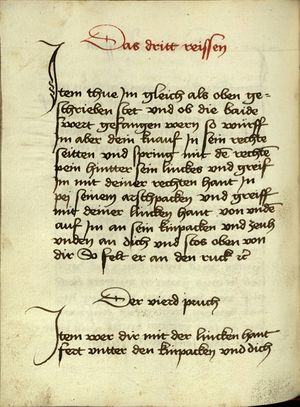 Das dritt reissen
Item thue Im gleich als oben ge=
schrieben stet und ob die baide
wert gefangen wern so wurff
im aber dein knauf In sein rechte
seitten und spring mit de rechte
pein hintter sein linckes und greif
Im mit deiner rechten hant In
pej seinem arschpacken und greiff
mit deiner lincken hant von unde
auf In an sein kinpacken und zeuh
unden an dich und stos oben von
dir So felt er an den ruck
Der vierd pruch
Item wer dir mit der lincken hant
fert untter den kinpacken und dich